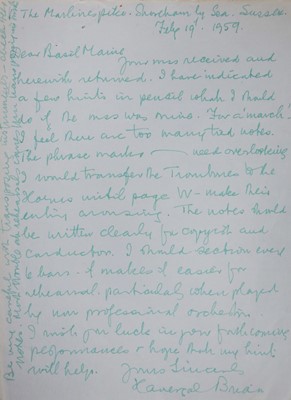 The Marlinespike. Shoreham by Sea. Sussex.
Feby 19th. 1959.
Dear Basil Maine
Your mss received and
herewith returned. I have indicated
a few hints in pencil which I should
do if the mss was mine. For a 'march'
I feel there are too many tied notes.
The phrase marks need overlooking
I would transfer the Trombones to the
Horns until page W - make their
entry arousing. The notes should
be written clearly for copyist and
conductor. I should section every
10 bars. It makes it easier for
rehearsal, particularly when played
by non professional orchestra.
I wish you luck in your forthcoming
performances & hope that my hints
will help.
Yours Sincerely
Havergal Brian
Be very careful with transposing instruments